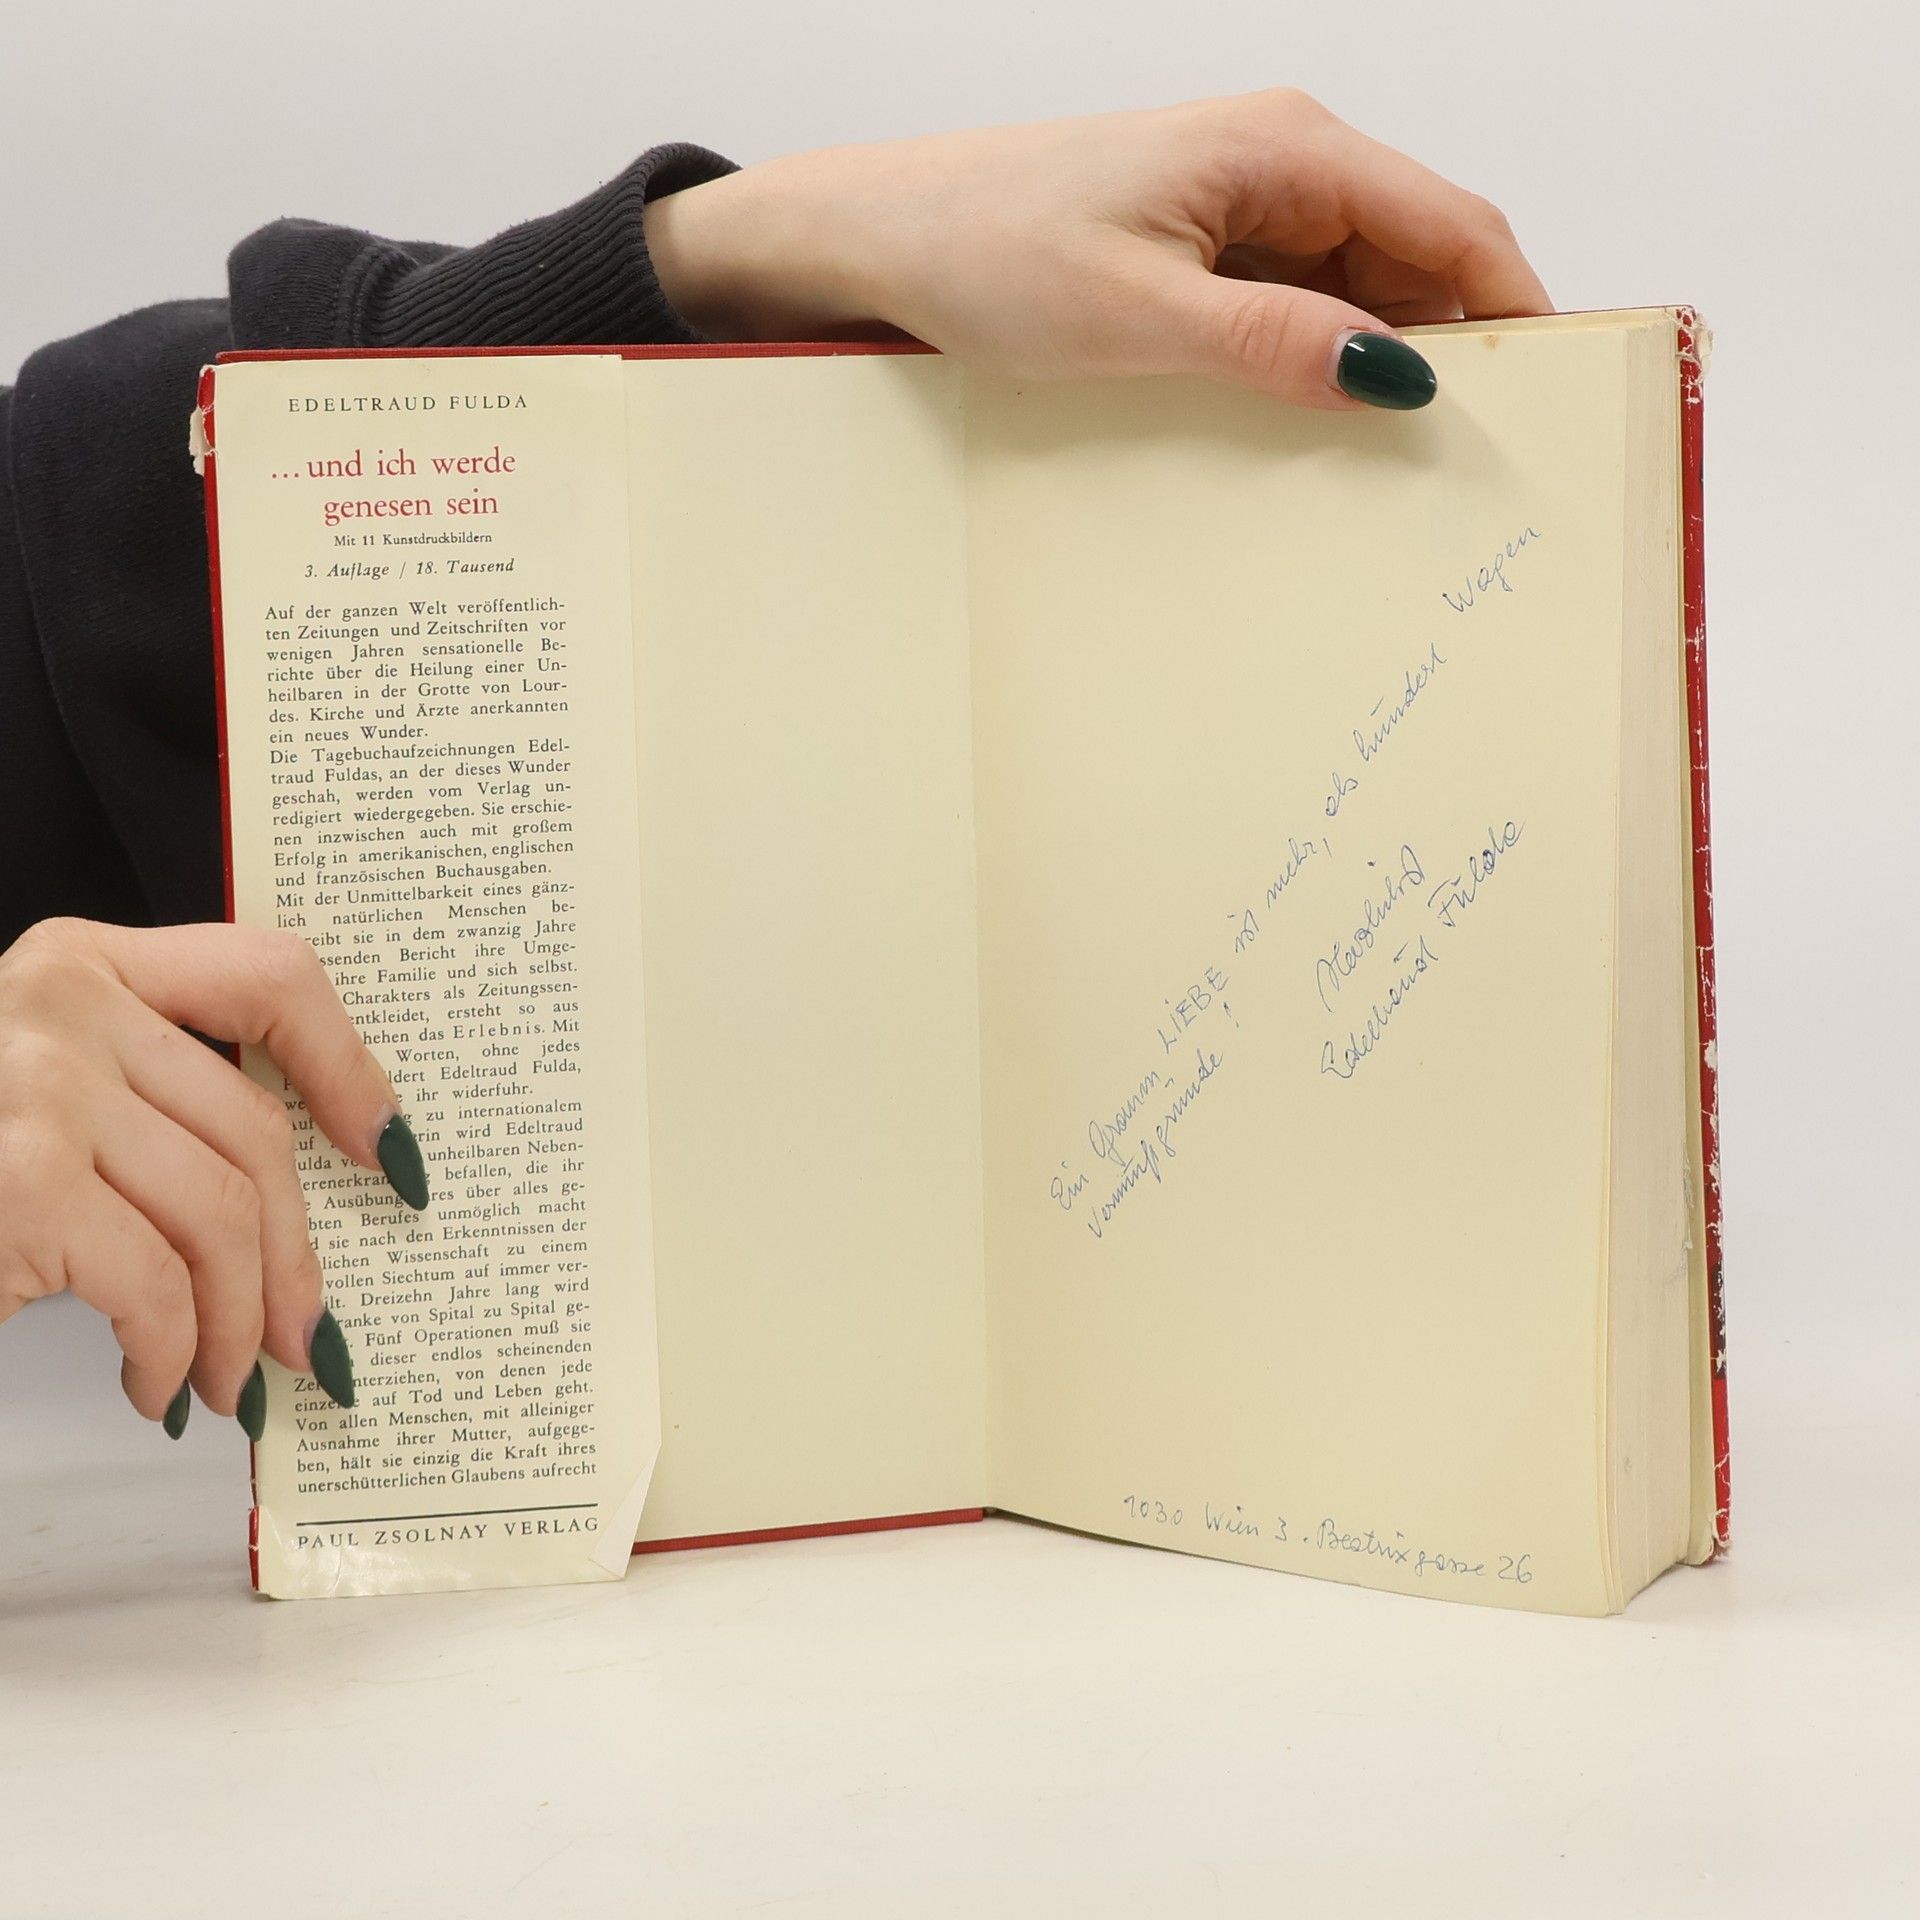 EDELTRAUD FULDA
... und ich werde
genesen sein
Mit 11 Kunstdruckbildern
3. Auflage / 18. Tausend
Auf der ganzen Welt veröffentlich-
ten Zeitungen und Zeitschriften vor
wenigen Jahren sensationelle Be-
richte über die Heilung einer Un-
heilbaren in der Grotte von Lour-
des. Kirche und Ärzte anerkannten
ein neues Wunder.
Die Tagebuchaufzeichnungen Edel-
traud Fuldas, an der dieses Wunder
geschah, werden vom Verlag un-
redigiert wiedergegeben. Sie erschie-
nen inzwischen auch mit großem
Erfolg in amerikanischen, englischen
und französischen Buchausgaben.
Mit der Unmittelbarkeit eines gänz-
lich natürlichen Menschen be-
reibt sie in dem zwanzig Jahre
ssenden Bericht ihre Umge-
ihre Familie und sich selbst.
Charakters als Zeitungssen-
entkleidet, ersteht so aus
hehen das Erlebnis. Mit
Worten, ohne jedes
ldert Edeltraud Fulda,
ihr widerfuhr.
zu internationalem
rin wird Edeltraud
ulda unheilbaren Neben-
erenerkran befallen, die ihr
Ausübung res über alles ge-
bten Berufes unmöglich macht
d sie nach den Erkenntnissen der
lichen Wissenschaft zu einem
vollen Siechtum auf immer ver-
ilt. Dreizehn Jahre lang wird
ranke von Spital zu Spital ge-
Fünf Operationen muß sie
dieser endlos scheinenden
Zei nterziehen, von denen jede
einze auf Tod und Leben geht.
Von allen Menschen, mit alleiniger
Ausnahme ihrer Mutter, aufgege-
ben, hält sie einzig die Kraft ihres
unerschütterlichen Glaubens aufrecht
PAUL ZSOLNAY VERLAG
Ein Gramm LIEBE ist mehr, als hundert Wagen
Vernunftgründe!
Herzlichst
Edeltraud Fulda
1030 Wien 3. Beatrixgasse 26